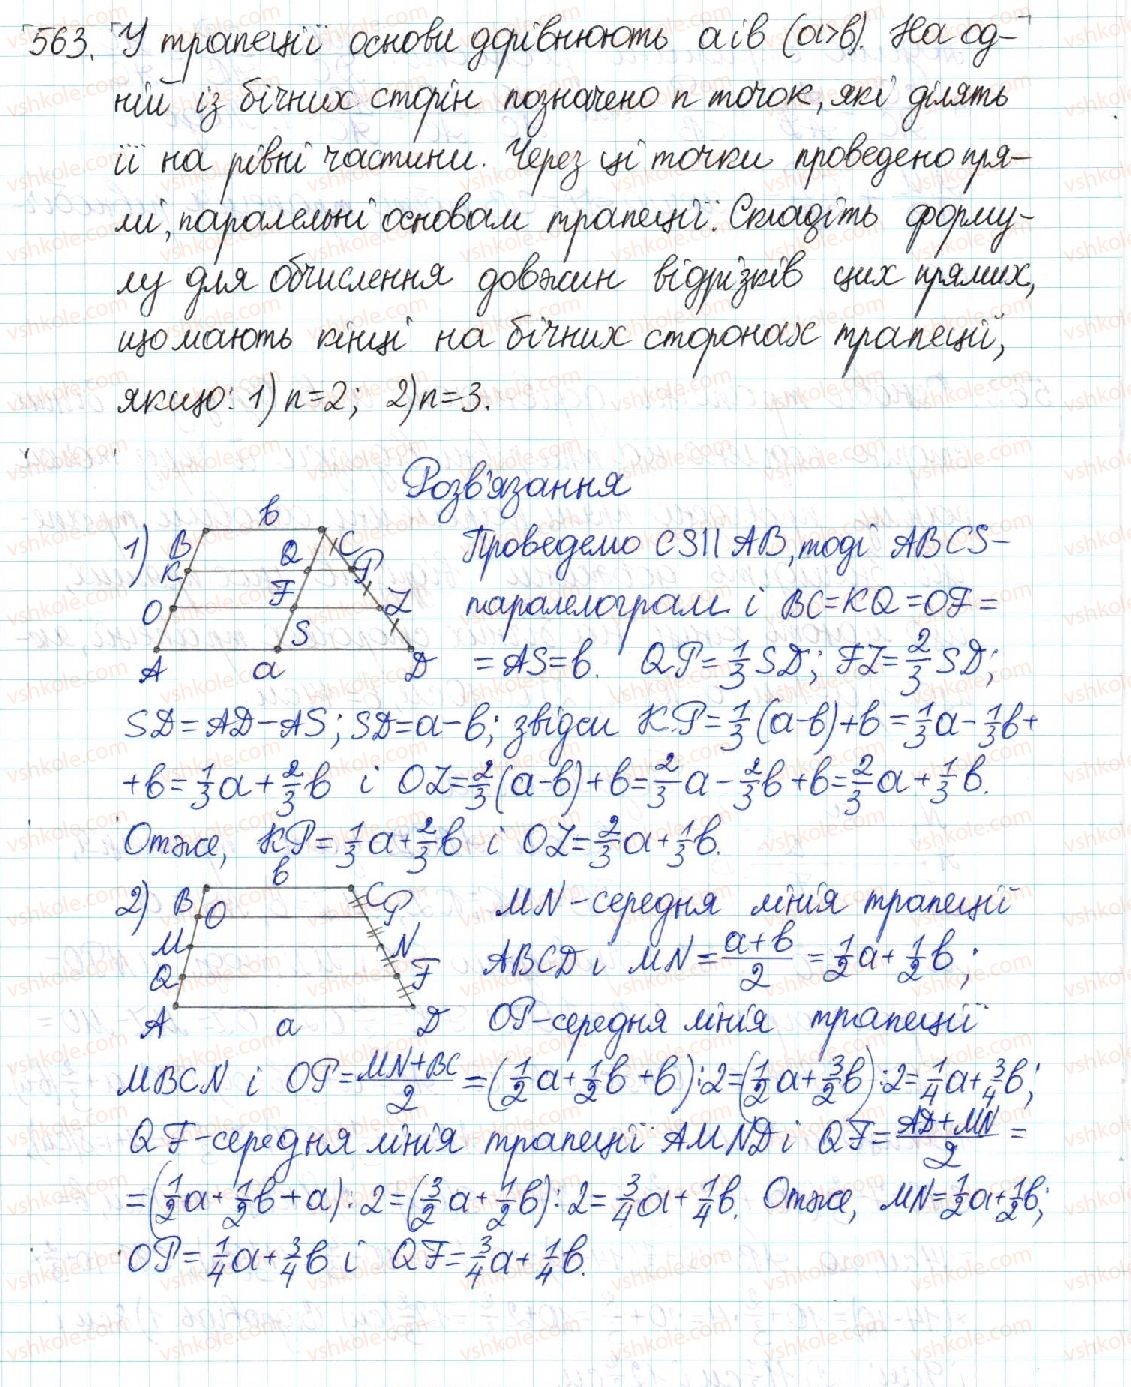 563. У трапеції основи дорівнюють a і b (a>b). На од-
ній із бічних сторін позначено n точок, які ділять
її на рівні частини. Через ці точки проведено пря-
мі, паралельні основам трапеції. Складіть форму-
лу для обчислення довжин відрізків цих прямих,
що мають кінці на бічних сторонах трапеції,
якщо: 1) n=2; 2) n=3.
Розв'язання
1) B b C K Q P O F Z A a S D
Проведемо CS||AB, тоді ABCS-
паралелограм і BC=KQ=OF=
=AS=b. QP=1/3 SD; FZ=2/3 SD;
SD=AD-AS; SD=a-b; звідси KP=1/3(a-b)+b=1/3a-1/3b+
+b=1/3a+2/3b і OZ=2/3(a-b)+b=2/3a-2/3b+b=2/3a+1/3b.
Отже, KP=1/3a+2/3b і OZ=2/3a+1/3b.
2) B b C O P M N Q F A a D
MN-середня лінія трапеції
ABCD і MN=(a+b)/2=1/2a+1/2b;
OP-середня лінія трапеції
MBCN і OP=(MN+BC)/2=(1/2a+1/2b+b):2=(1/2a+3/2b):2=1/4a+3/4b;
QF-середня лінія трапеції AMND і QF=(AD+MN)/2=
=(1/2a+1/2b+a):2=(3/2a+1/2b):2=3/4a+1/4b. Отже, MN=1/2a+1/2b;
OP=1/4a+3/4b і QF=3/4a+1/4b.
vshkole.com